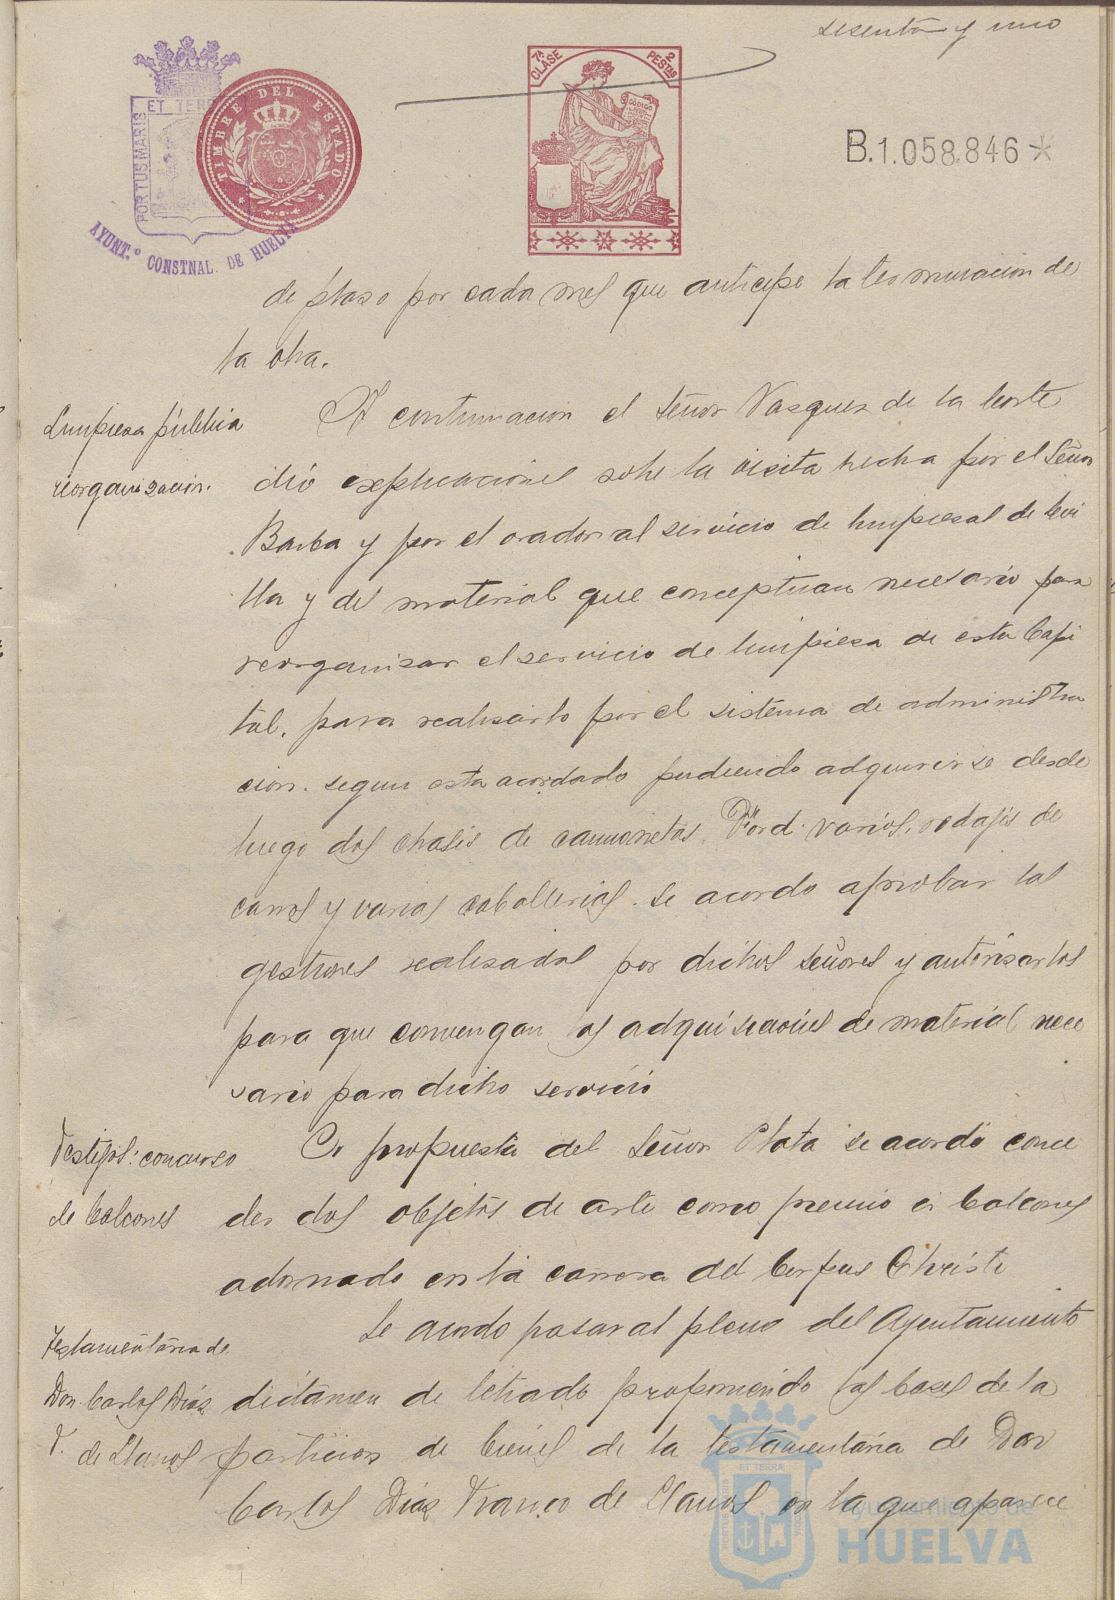 sesenta y uno
7ª CLASE 2 PESTAS
CÓDIGO
ET TERRÆ
PORTUS MARIS
TIMBRE DEL ESTADO
AYUNT.º CONSTNAL. DE HUELVA
B.1.058.846*
de plaso por cada mes que anticipe la terminacion de
la obra.
Limpiesa pública
reorganisacion.
A continuacion el Señor Vasques de la Corte
dió explicaciones sobre la visita hecha por el Señor
Barba y por el orador al servicio de limpiesas de Sevi
lla y del material que conceptuan necesario para
reorganisar el servicio de limpiesa de esta Capi
tal, para realisarlo por el sistema de administra
cion segun esta acordado pudiendo adquirirse desde
luego dos chasis de camionetas "Ford" varios rodajes de
carros y varias caballerias. Se acordo aprobar las
gestiones realisadas por dichos señores y autorisarlos
para que convengan las adquisiciones de material nece
sario para dicho servicio
Festejos: concurso
de balcones
A propuesta del Señor Plata se acordó conce
der dos objetos de arte como premio á balcones
adornado en la carrera del Corpus Christi
Testamentaria de
Don Carlos Dias
F. de Llanos
Se acordo pasar al pleno del Ayuntamiento
dictamen de letrado proponiendo las bases de la
particion de bienes de la testamentaria de Don
Carlos Dias Franco de Llanos en la que aparece
Ayuntamiento de
HUELVA